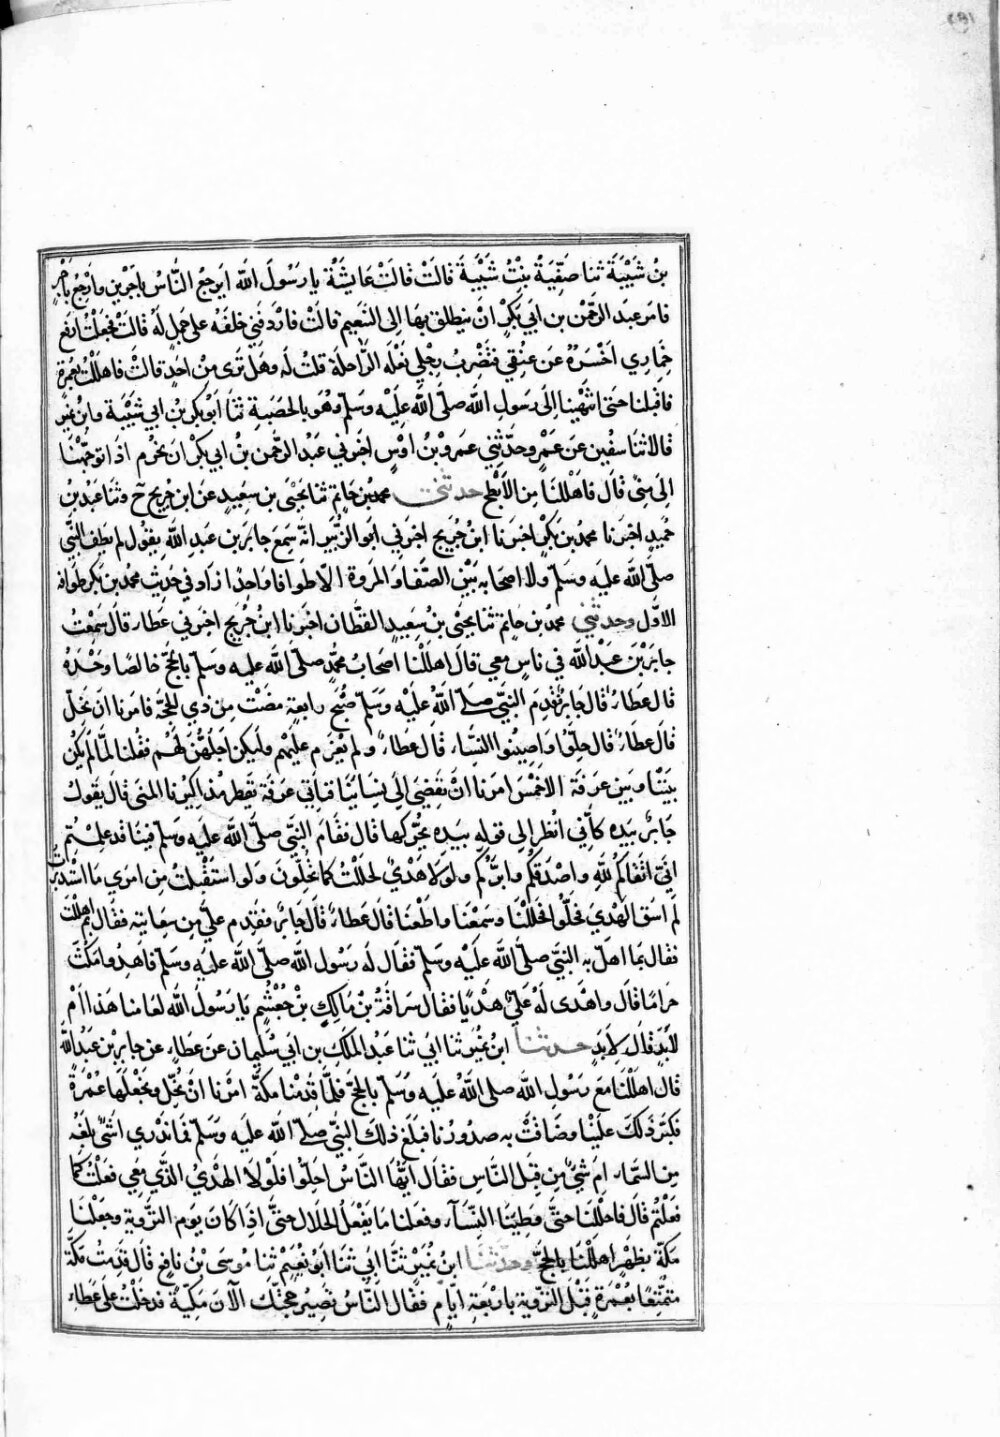 بن شيبة ثنا صفية بنت شيبة قالت قالت عايشة يا رسول الله ايرجع الناس باجرين وارجع باجر
فامر عبد الرحمن بن ابي بكر ان ينطلق بها الى التنعيم قالت فاردفني خلفه على جمل له قالت فجعلت ارفع
خماري احسره عن عنقي فتضرب رجلي نعله الراحلة قلت له وهل ترى من احد قالت فاهللت بعمرة
فاقبلنا حتى انتهينا الى رسول الله صلى الله عليه وسلم وهو بالحصبة ثنا ابو بكر بن ابي شيبة وابن نمير
قالا ثنا سفين عن عمر وحدثني عمرو بن اوس اخبرني عبد الرحمن بن ابي بكر ان نحرم اذا توجهنا
الى منى قال فاهللنا من الابطح حدثني محمد بن حاتم ثنا يحيى بن سعيد عن ابن جريج ح وثنا عبد بن
حميد اخبرنا محمد بن بكر اخبرنا ابن جريج اخبرني ابو الزبير انه سمع جابر بن عبد الله يقول لم يطف النبي
صلى الله عليه وسلم ولا اصحابه بين الصفا والمروة الا طوافا واحدا زاد في حديث محمد بن بكر طوافه
الاول وحدثني محمد بن حاتم ثنا يحيى بن سعيد القطان اخبرنا ابن جريج اخبرني عطاء قال سمعت
جابر بن عبد الله في ناس معي قال اهللنا اصحاب محمد صلى الله عليه وسلم بالحج خالصا وحده
قال عطاء قال جابر فقدم النبي صلى الله عليه وسلم صبح رابعة مضت من ذي الحجة فامرنا ان نحل
قال عطاء قال حلوا واصيبوا النساء قال عطاء ولم يعزم عليهم ولكن احلهن لهم فقلنا لما لم يكن
بيننا وبين عرفة الا خمس امرنا ان نفضي الى نسائنا فنأتي عرفة تقطر مذاكيرنا المنى قال يقول
جابر بيده كأني انظر الى قوله بيده يحركها قال فقام النبي صلى الله عليه وسلم فينا قد علمتم
اني اتقاكم لله واصدقكم وابركم ولولا هديي لحللت كما تحلون ولو استقبلت من امري ما استدبرت
لم اسق الهدي فحلوا فحللنا وسمعنا واطعنا قال عطاء قال جابر فقدم علي من سعايته فقال بم اهللت
فقال بما اهل به النبي صلى الله عليه وسلم فقال له رسول الله صلى الله عليه وسلم فاهد وامكث
حراما قال واهدى له علي هديا فقال سراقة بن مالك بن جعشم يا رسول الله لعامنا هذا ام
للابد قال لابد حدثنا ابن نمير ثنا ابي ثنا عبد الملك بن ابي سليمان عن عطاء عن جابر بن عبد الله
قال اهللنا مع رسول الله صلى الله عليه وسلم بالحج فلما قدمنا مكة امرنا ان نحل ونجعلها عمرة
فكبر ذلك علينا وضاقت به صدورنا فبلغ ذلك النبي صلى الله عليه وسلم فما ندري اشئ بلغه
من السماء ام شئ من قبل الناس فقال ايها الناس احلوا فلولا الهدي الذي معي فعلت كما
فعلتم قال فاحللنا حتى وطينا النسآء وفعلنا ما يفعل الحلال حتى اذا كان يوم التروية وجعلنا
مكة بظهر اهللنا بالحج وحدثنا ابن نمير ثنا ابي ثنا ابو نعيم ثنا موسى بن نافع قال قدمت مكة
متمتعا بعمرة قبل التروية باربعة ايام فقال الناس تصير حجتك الآن مكية فدخلت على عطاء